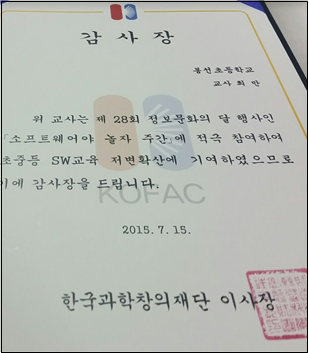 감 사 장
봉선초등학교
교사 최 만
위 교사는 제 28회 정보문화의 달 행사인
「소프트웨어야 놀자 주간」에 적극 참여하여
초중등 SW교육 저변확산에 기여하였으므로
이에 감사장을 드립니다.
KOFAC
2015. 7. 15.
한국과학창의재단 이사장